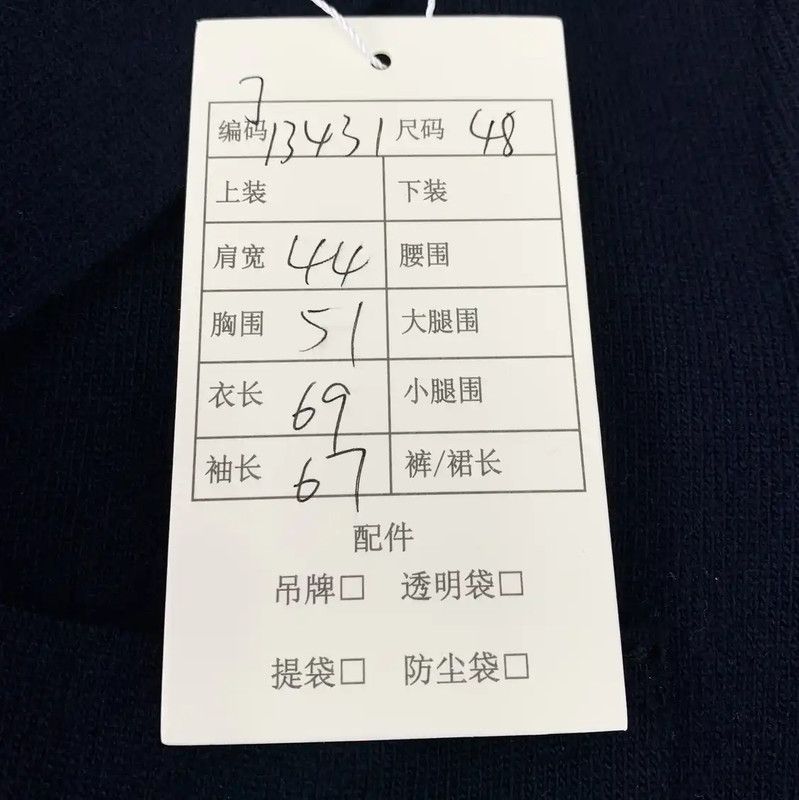 7
编码 13431 尺码 48
上装 下装
肩宽 44 腰围
胸围 51 大腿围
衣长 69 小腿围
袖长 67 裤/裙长
配件
吊牌□ 透明袋□
提袋□ 防尘袋□